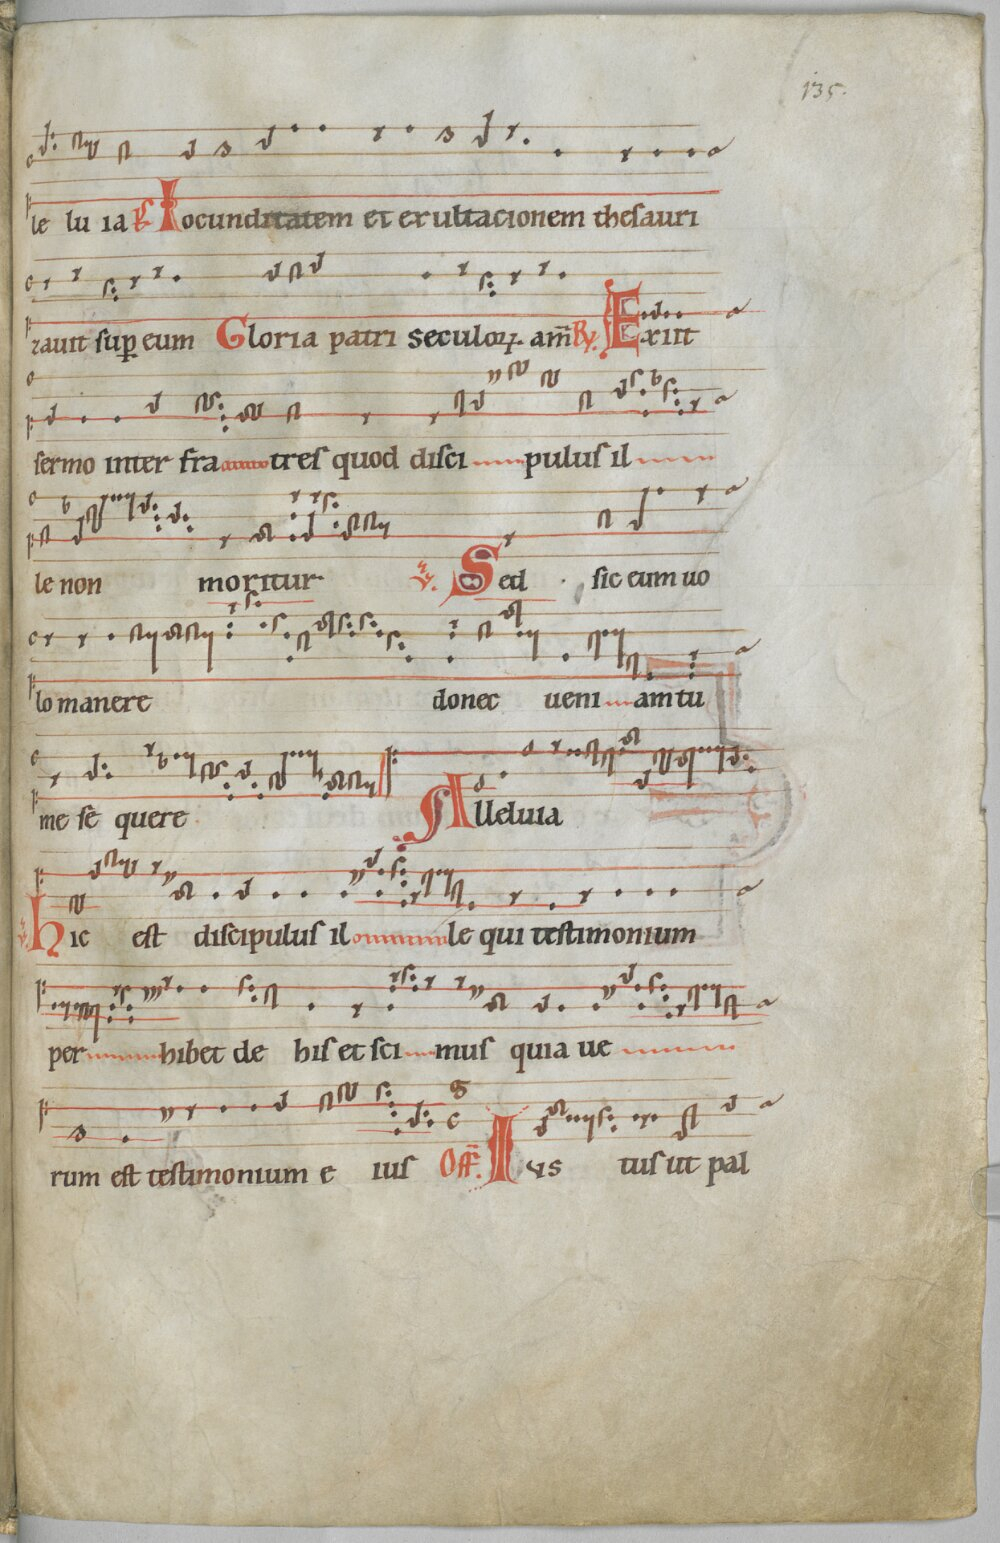 135.
le lu ia Ps Iocunditatem et exultacionem thesauri
zauit sup eum Gloria patri seculoꝝ. am̄ R̸. Exiit
sermo inter fra tres quod disci pulus il
le non moritur. V. Sed sic eum uo
lo manere donec ueni am tu
me se quere Alleluia
V. hic est discipulus il le qui testimonium
per hibet de his et sci mus quia ue
rum est testimonium e ius Off. Ius tus ut pal